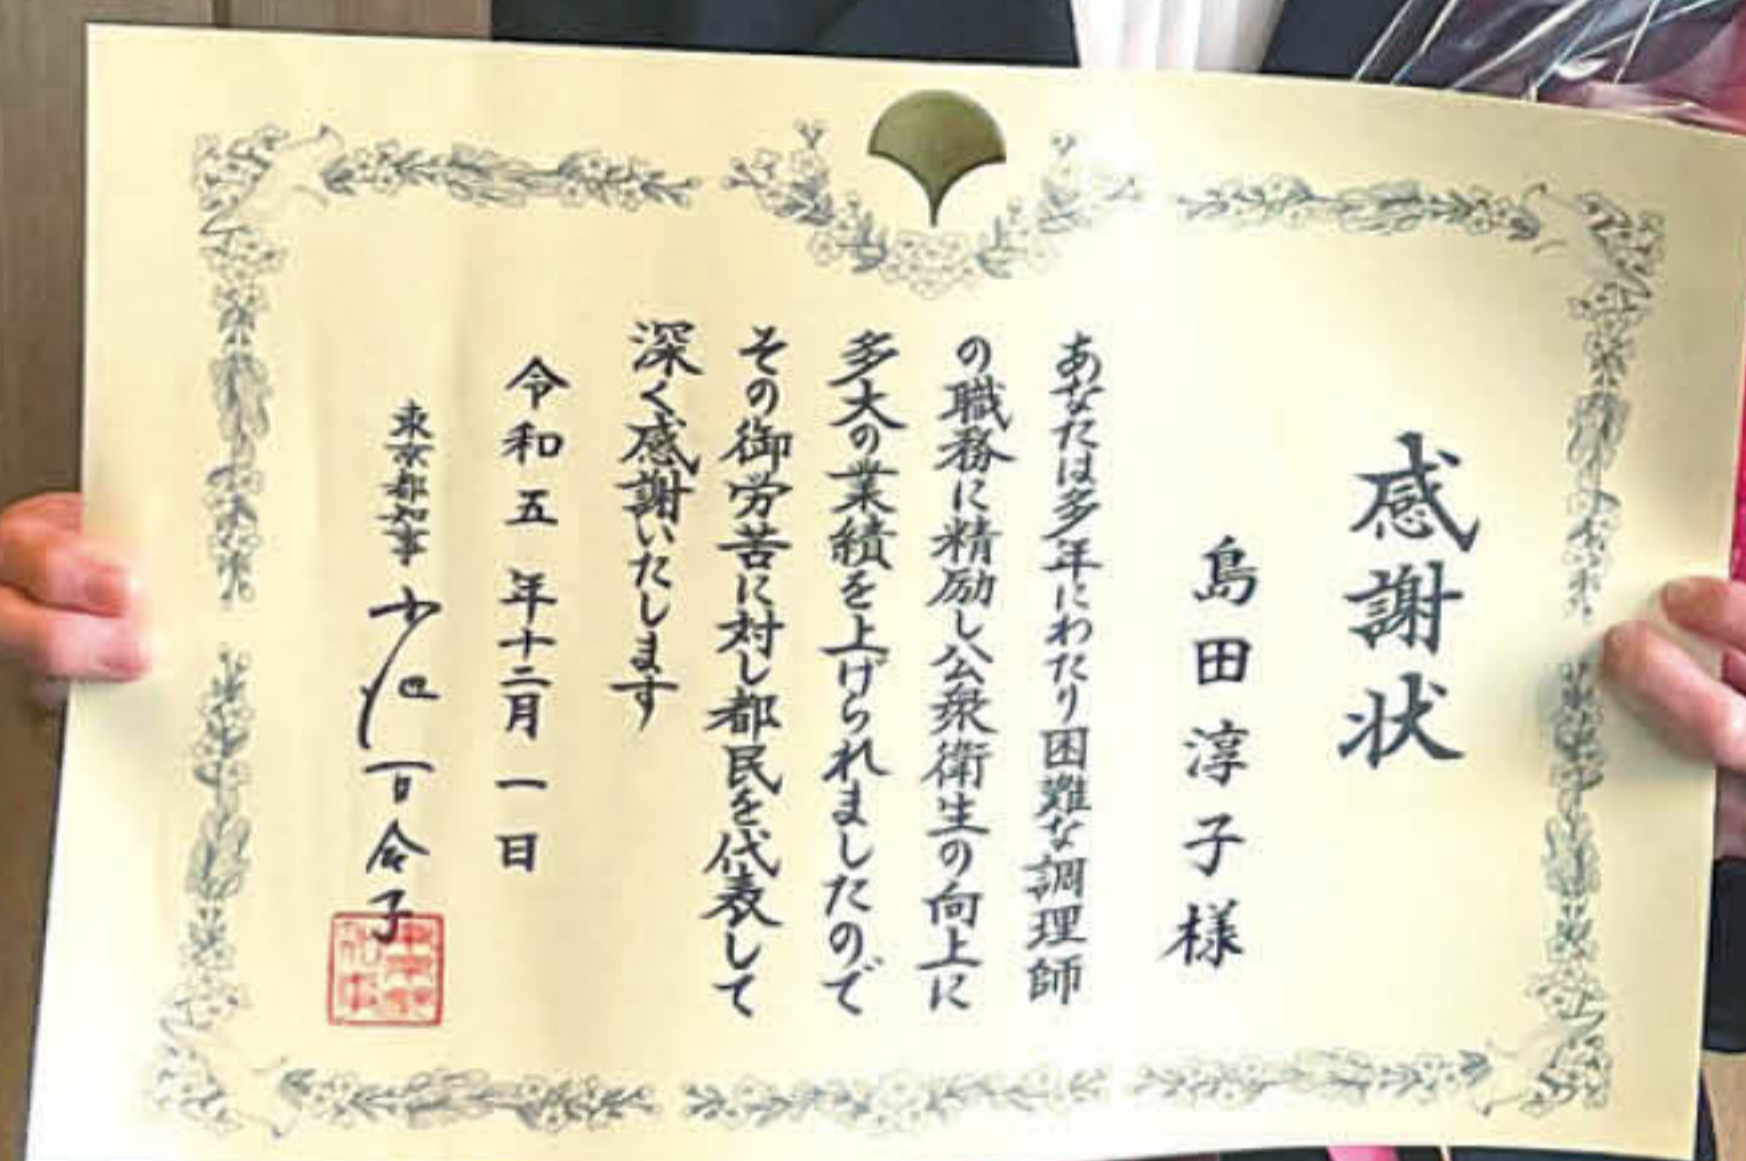 感謝状
島田淳子様
あなたは多年にわたり困難な調理師
の職務に精励し公衆衛生の向上に
多大の業績を上げられましたので
その御労苦に対し都民を代表して
深く感謝いたします
令和五年十二月一日
東京都知事 小池百合子